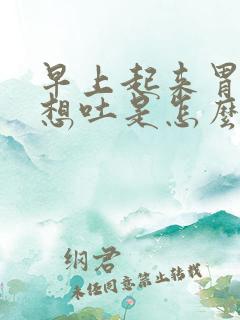 早上起来胃
想吐是怎么
纲君
未经同意禁止转载